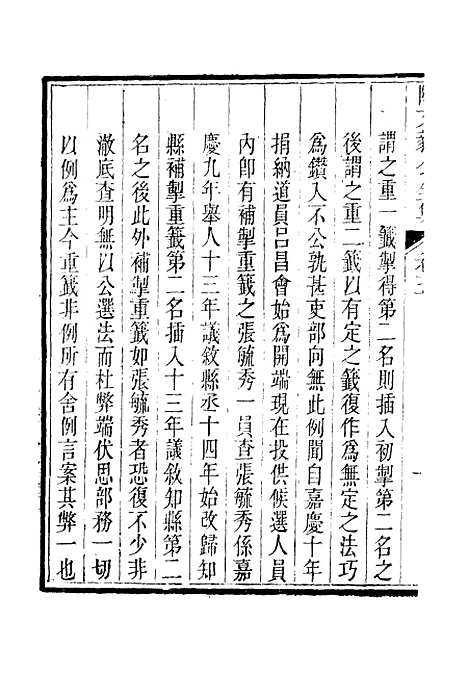 謂之重一籤掣得第二名則插入初掣第二名之
後謂之重二籤以有定之籤復作爲無定之法巧
爲鑽入不公孰甚吏部向無此例聞自嘉慶十年
捐納道員呂昌會始爲開端現在投供候選人員
內卽有補掣重籤之張毓秀一員查張毓秀係嘉
慶九年舉人十三年議敘縣丞十四年始改歸知
縣補掣重籤第二名插入十三年議敘知縣第二
名之後此外補掣重籤如張毓秀者恐復不少非
澈底查明無以公選法而杜弊端伏思部務一切
以例爲主今重籤非例所有舍例言案其弊一也